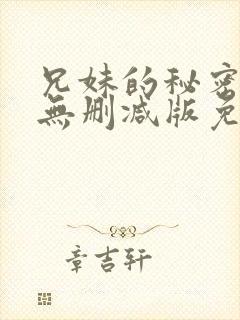 兄妹的秘密
無删减版免
章吉轩